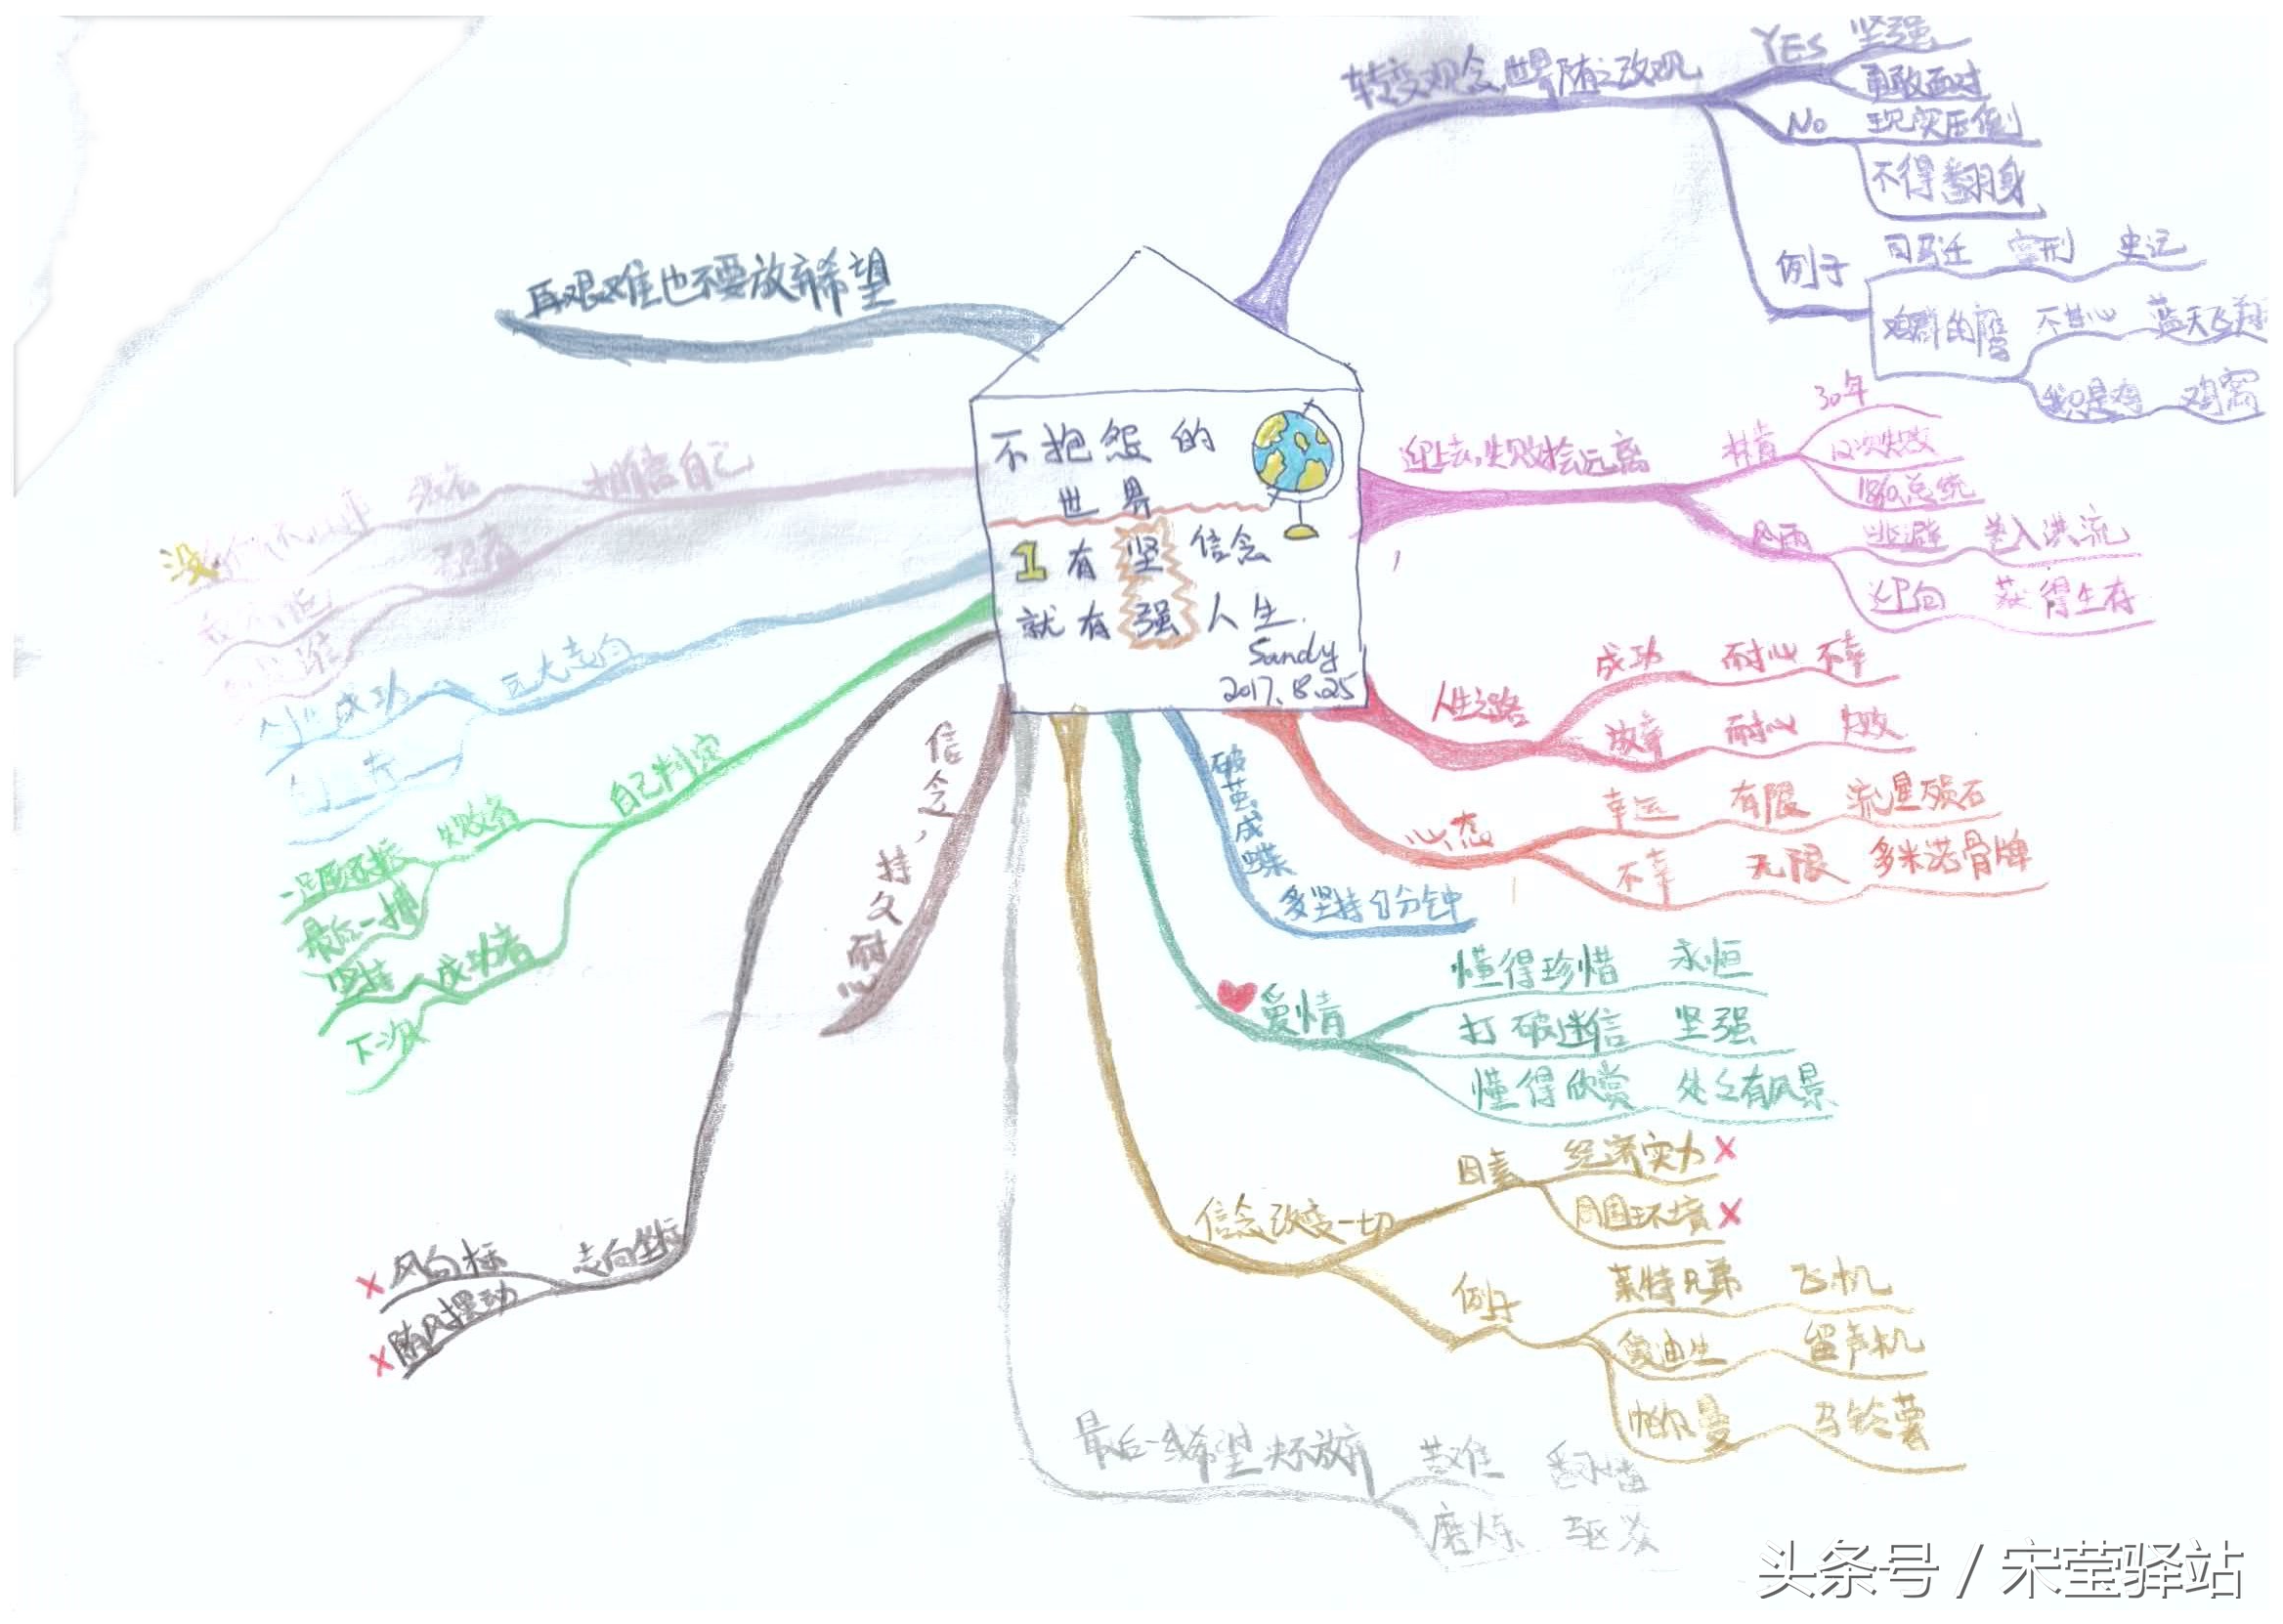 不抱怨的
世界
1 有坚信念
就有强人生.
Sandy
2017.8.25
转变观念,世界随之改观
YES 坚强
勇敢面对
No 现实压倒
不得翻身
例子 司马迁 宫刑 史记
鸡群的鹰 不甘心 蓝天飞翔
我只是鸡 鸡窝
迎上去,失败才会远离
林肯 30年
12次失败
1860总统
风雨 逃避 卷入洪流
迎向 获得生存
人生之路
成功 耐心 不幸
放弃 耐心 失败
心态
幸运 有限 流星陨石
不幸 无限 多米诺骨牌
破茧成蝶
多坚持1分钟
爱情
懂得珍惜 永恒
打破迷信 坚强
懂得欣赏 处处有风景
信念改变一切
因素 经济实力 ×
周围环境 ×
例子 莱特兄弟 飞机
爱迪生 留声机
帕尔曼 马铃薯
最后一线希望决不放弃
苦难
磨炼
信念,持久耐心
志向坐标
× 风向标
× 随风摆动
自己判定
失败者
一蹶不振
最后一搏
成功者
坚持
下次
远大志向
成功
相信自己
强者
弱者
没
再艰难也不要放弃希望
头条号 / 宋莹驿站